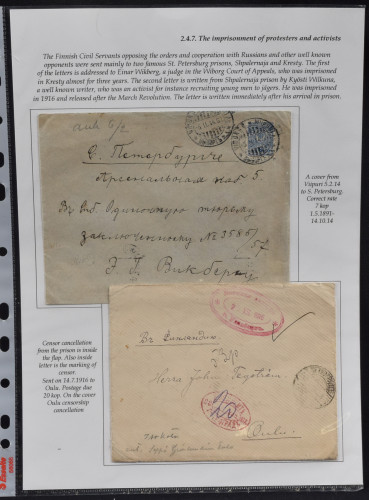 2.4.7. The imprisonment of protesters and activists
The Finnish Civil Servants opposing the orders and cooperation with Russians and other well known
opponents were sent mainly to two famous St. Petersburg prisons, Shpalernaja and Kresty. The first
of the letters is addressed to Einar Wikberg, a judge in the Wiborg Court of Appeals, who was imprisoned
in Kresty almost for three years. The second letter is written from Shpalernaja prison by Kyösti Wilkuna,
a well known writer, who was an activist for instance recruiting young men to jägers. He was imprisoned
in 1916 and released after the March Revolution. The letter is written immediately after his arrival in prison.
С. Петербургъ
Арсенальная наб 5
Въ Спб. Одиночную тюрьму
заключенному № 3585/
Э. Г. Викберг
A cover from
Viipuri 5.2.14
to S. Petersburg.
Correct rate
7 kop
1.5.1891-
14.10.14
Censor cancellation
from the prison is inside
the flap. Also inside
letter is the marking of
censer.
Sent on 14.7.1916 to
Oulu. Postage due
20 kop. On the cover
Oulu censorship
cancellation
Въ Финляндію
Herra John
20
Oulu